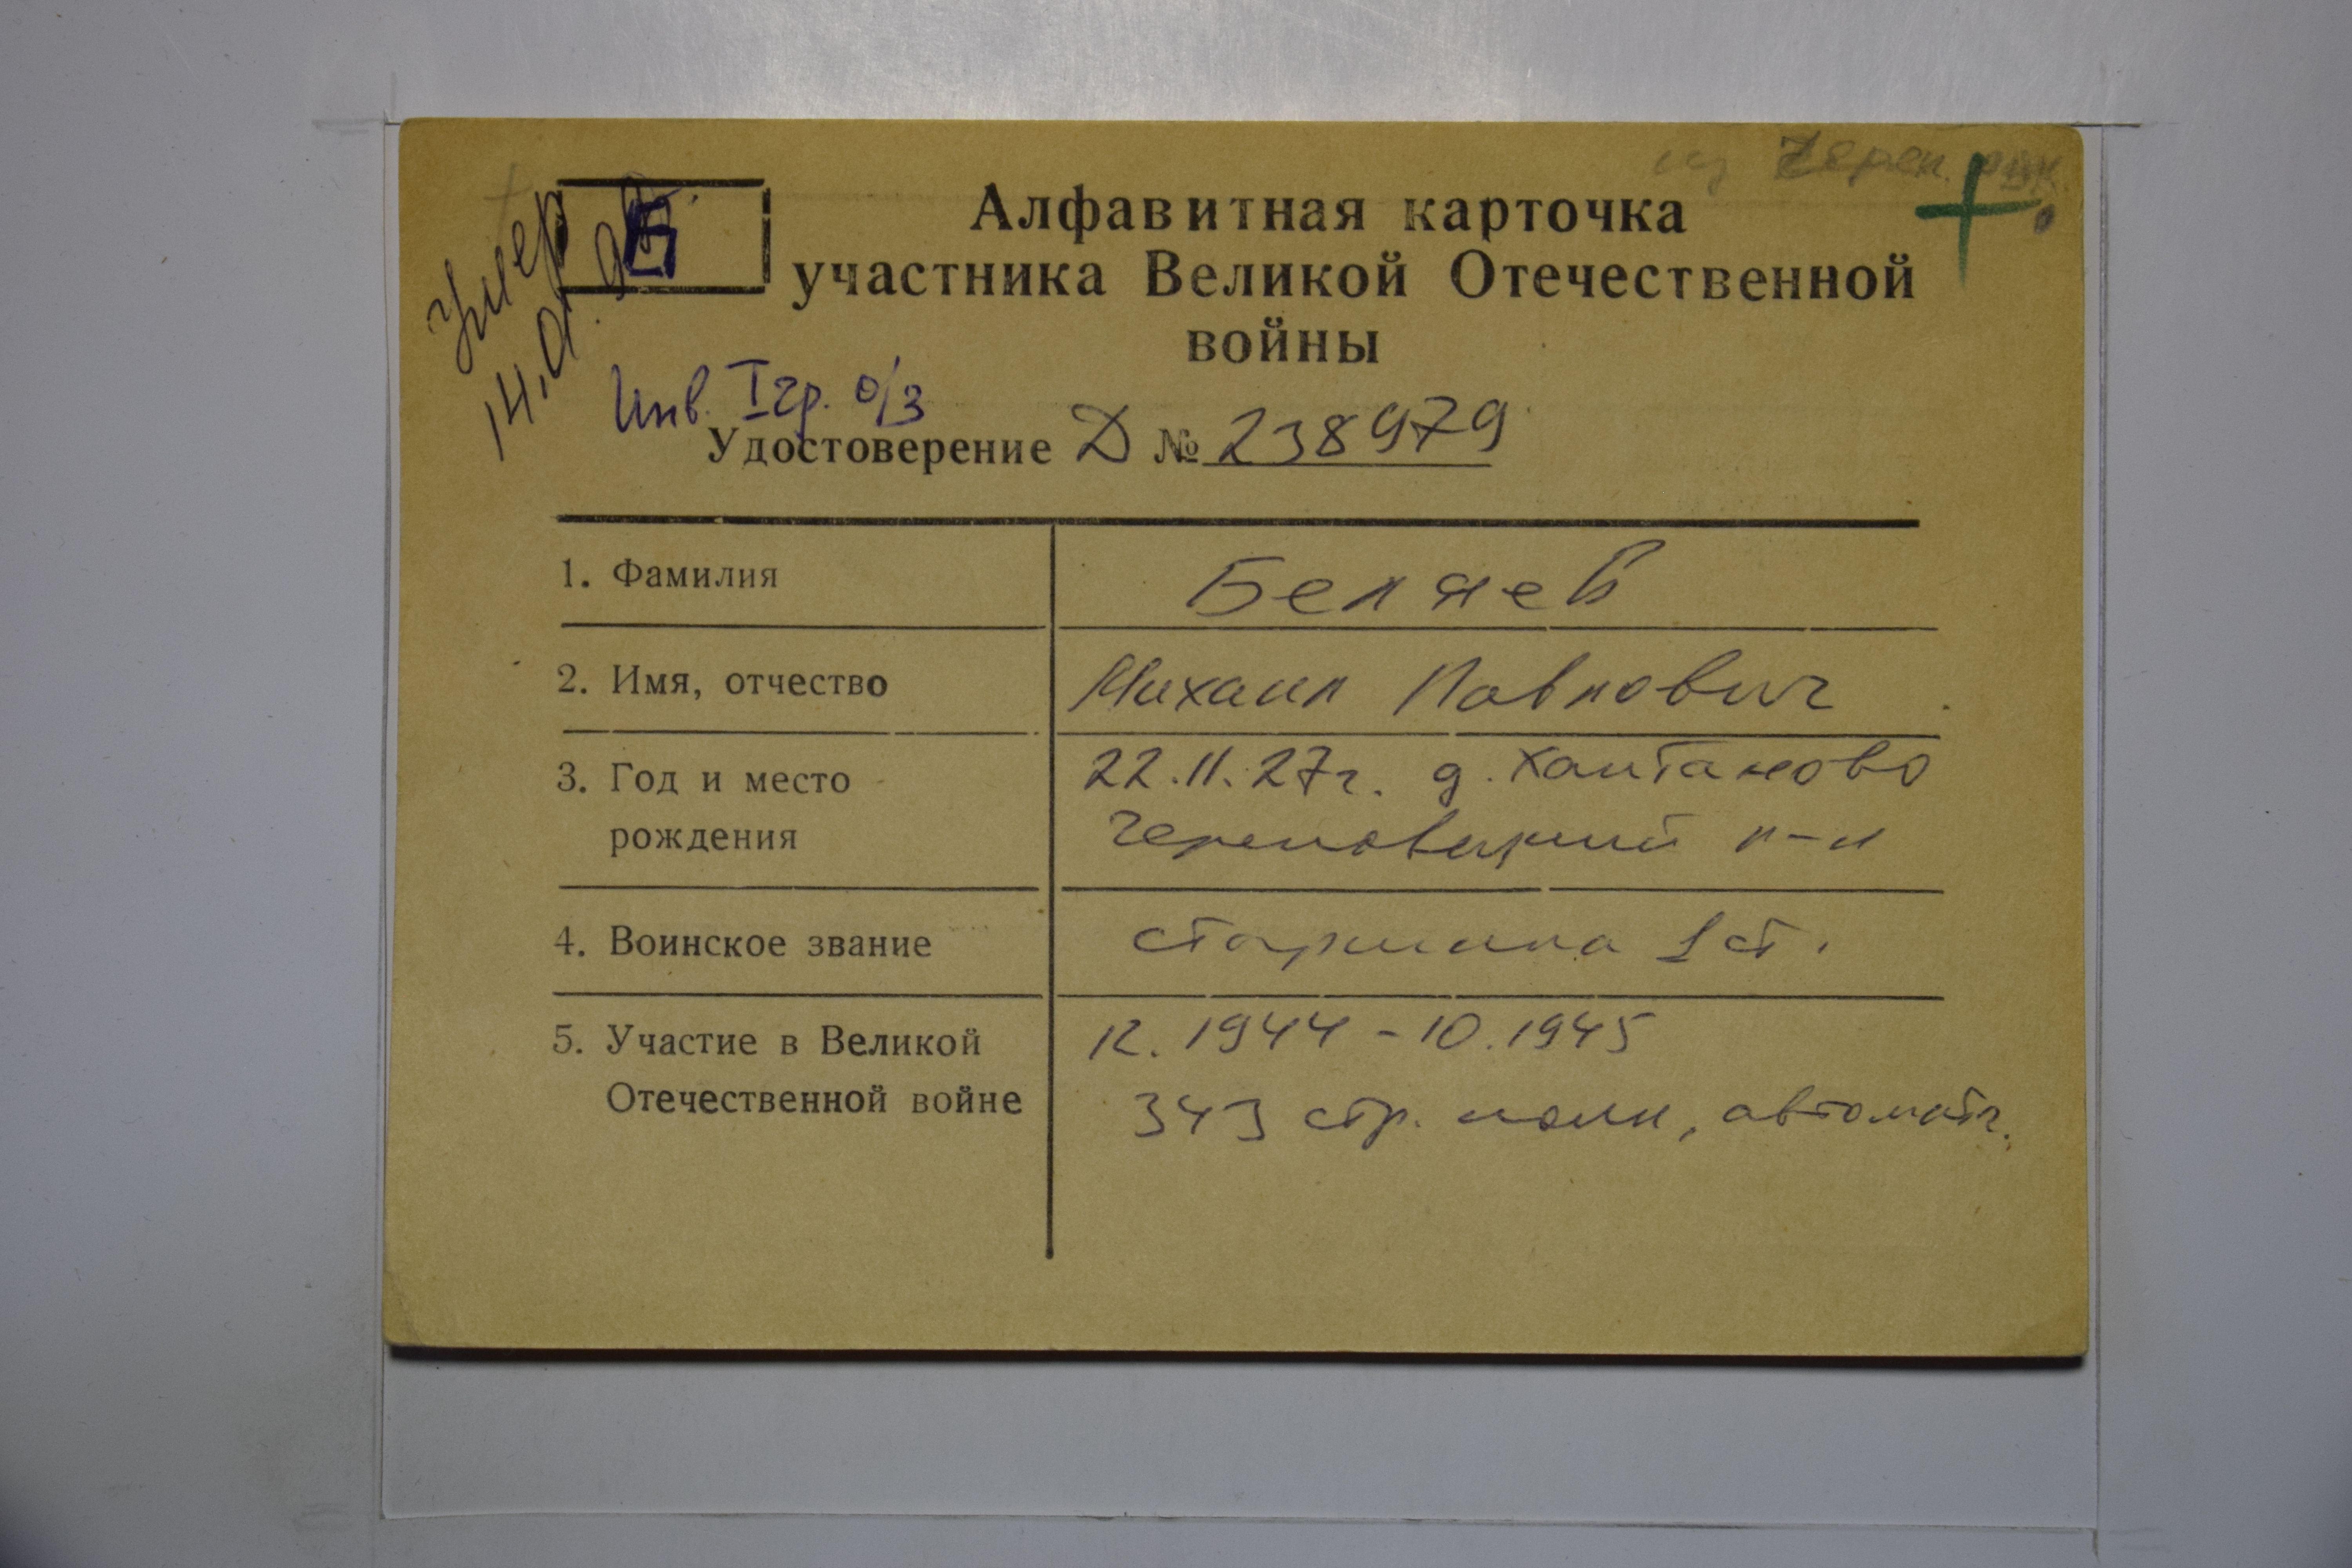 из Череп.
Умер
14.01.
Б
Алфавитная карточка
участника Великой Отечественной
войны
Инв. I гр. о/з
Удостоверение Д № 238979
1. Фамилия Беляев
2. Имя, отчество Михаил Павлович
3. Год и место 22.11.27г. д. Хантаново
рождения Череповецкий р-н
4. Воинское звание старшина 1 ст.
5. Участие в Великой 12.1944-10.1945
Отечественной войне 343 стр. полк, автоматч.